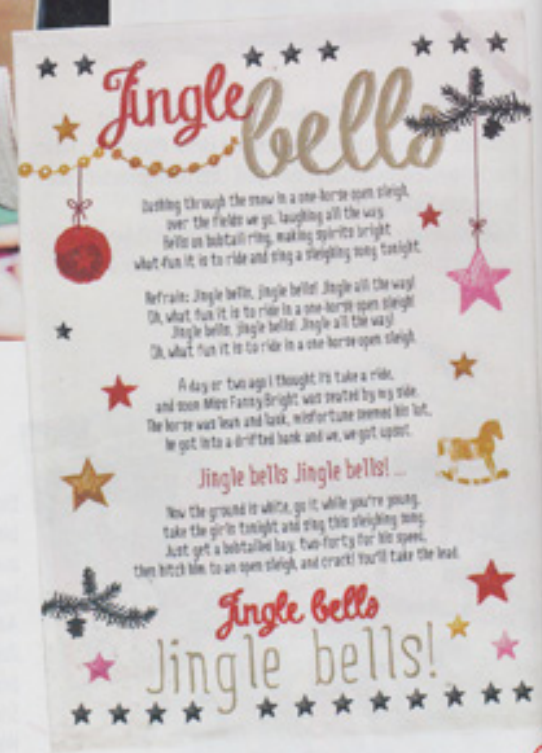 Jingle bells
Dashing through the snow in a one-horse open sleigh,
over the fields we go, laughing all the way.
Bells on bobtail ring, making spirits bright
what fun it is to ride and sing a sleighing song tonight.
Refrain: Jingle bells, jingle bells! Jingle all the way!
Oh, what fun it is to ride in a one horse open sleigh!
Jingle bells, jingle bells! Jingle all the way!
Oh, what fun it is to ride in a one horse open sleigh.
A day or two ago I thought I'd take a ride,
and soon Miss Fanny Bright was seated by my side.
The horse was lean and lank, misfortune seemed his lot,
he got into a drifted bank and we, we got upsot.
Jingle bells Jingle bells! ...
Now the ground is white, go it while you're young,
take the girls tonight and sing this sleighing song.
Just get a bobtailed bay, two-forty for his speed,
then hitch him to an open sleigh, and crack! You'll take the lead.
Jingle bells
Jingle bells!